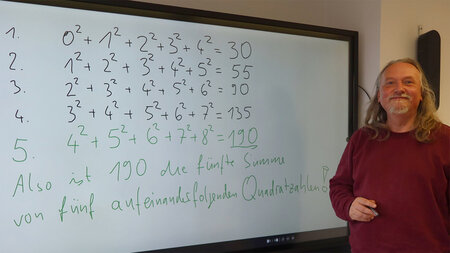 1. 0² + 1² + 2² + 3² + 4² = 30
2. 1² + 2² + 3² + 4² + 5² = 55
3. 2² + 3² + 4² + 5² + 6² = 90
4. 3² + 4² + 5² + 6² + 7² = 135
5. 4² + 5² + 6² + 7² + 8² = 190
Also ist 190 die fünfte Summe
von fünf aufeinandesfolgenden Quadratzahlen!